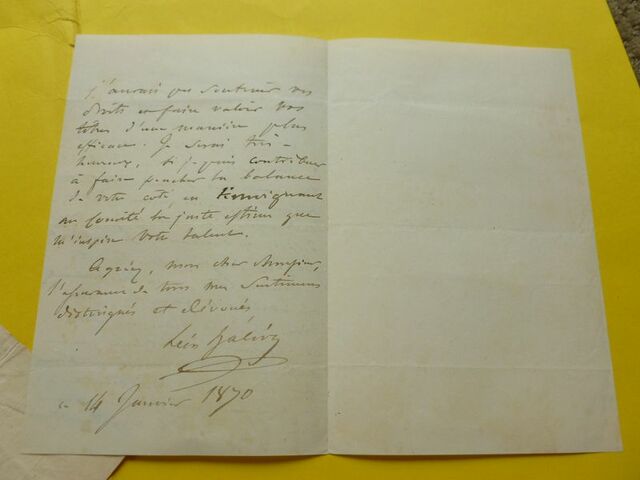 j'aurais pu soutenir vos
droits et faire valoir vos
titres d'une manière plus
efficace. Je serai très-
heureux, si je puis contribuer
à faire pencher la balance
de votre coté, en témoignant
au Comité la juste estime que
m'inspire votre talent.
Agréez, mon cher Monsieur,
l'assurance de tous mes sentimens
distingués et dévoués
Léon
14 Janvier 1870